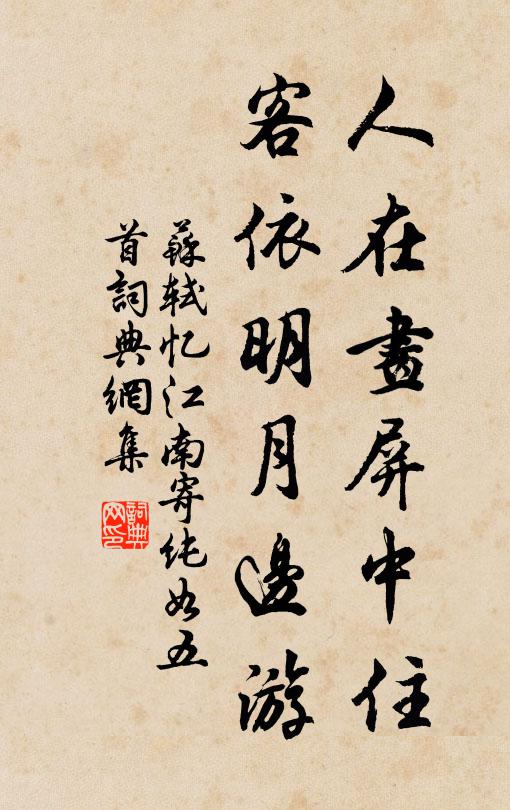 人在畫屏中住
客依明月邊游
蘇軾忆江南寄純如五
首詞典網集
詞典网印